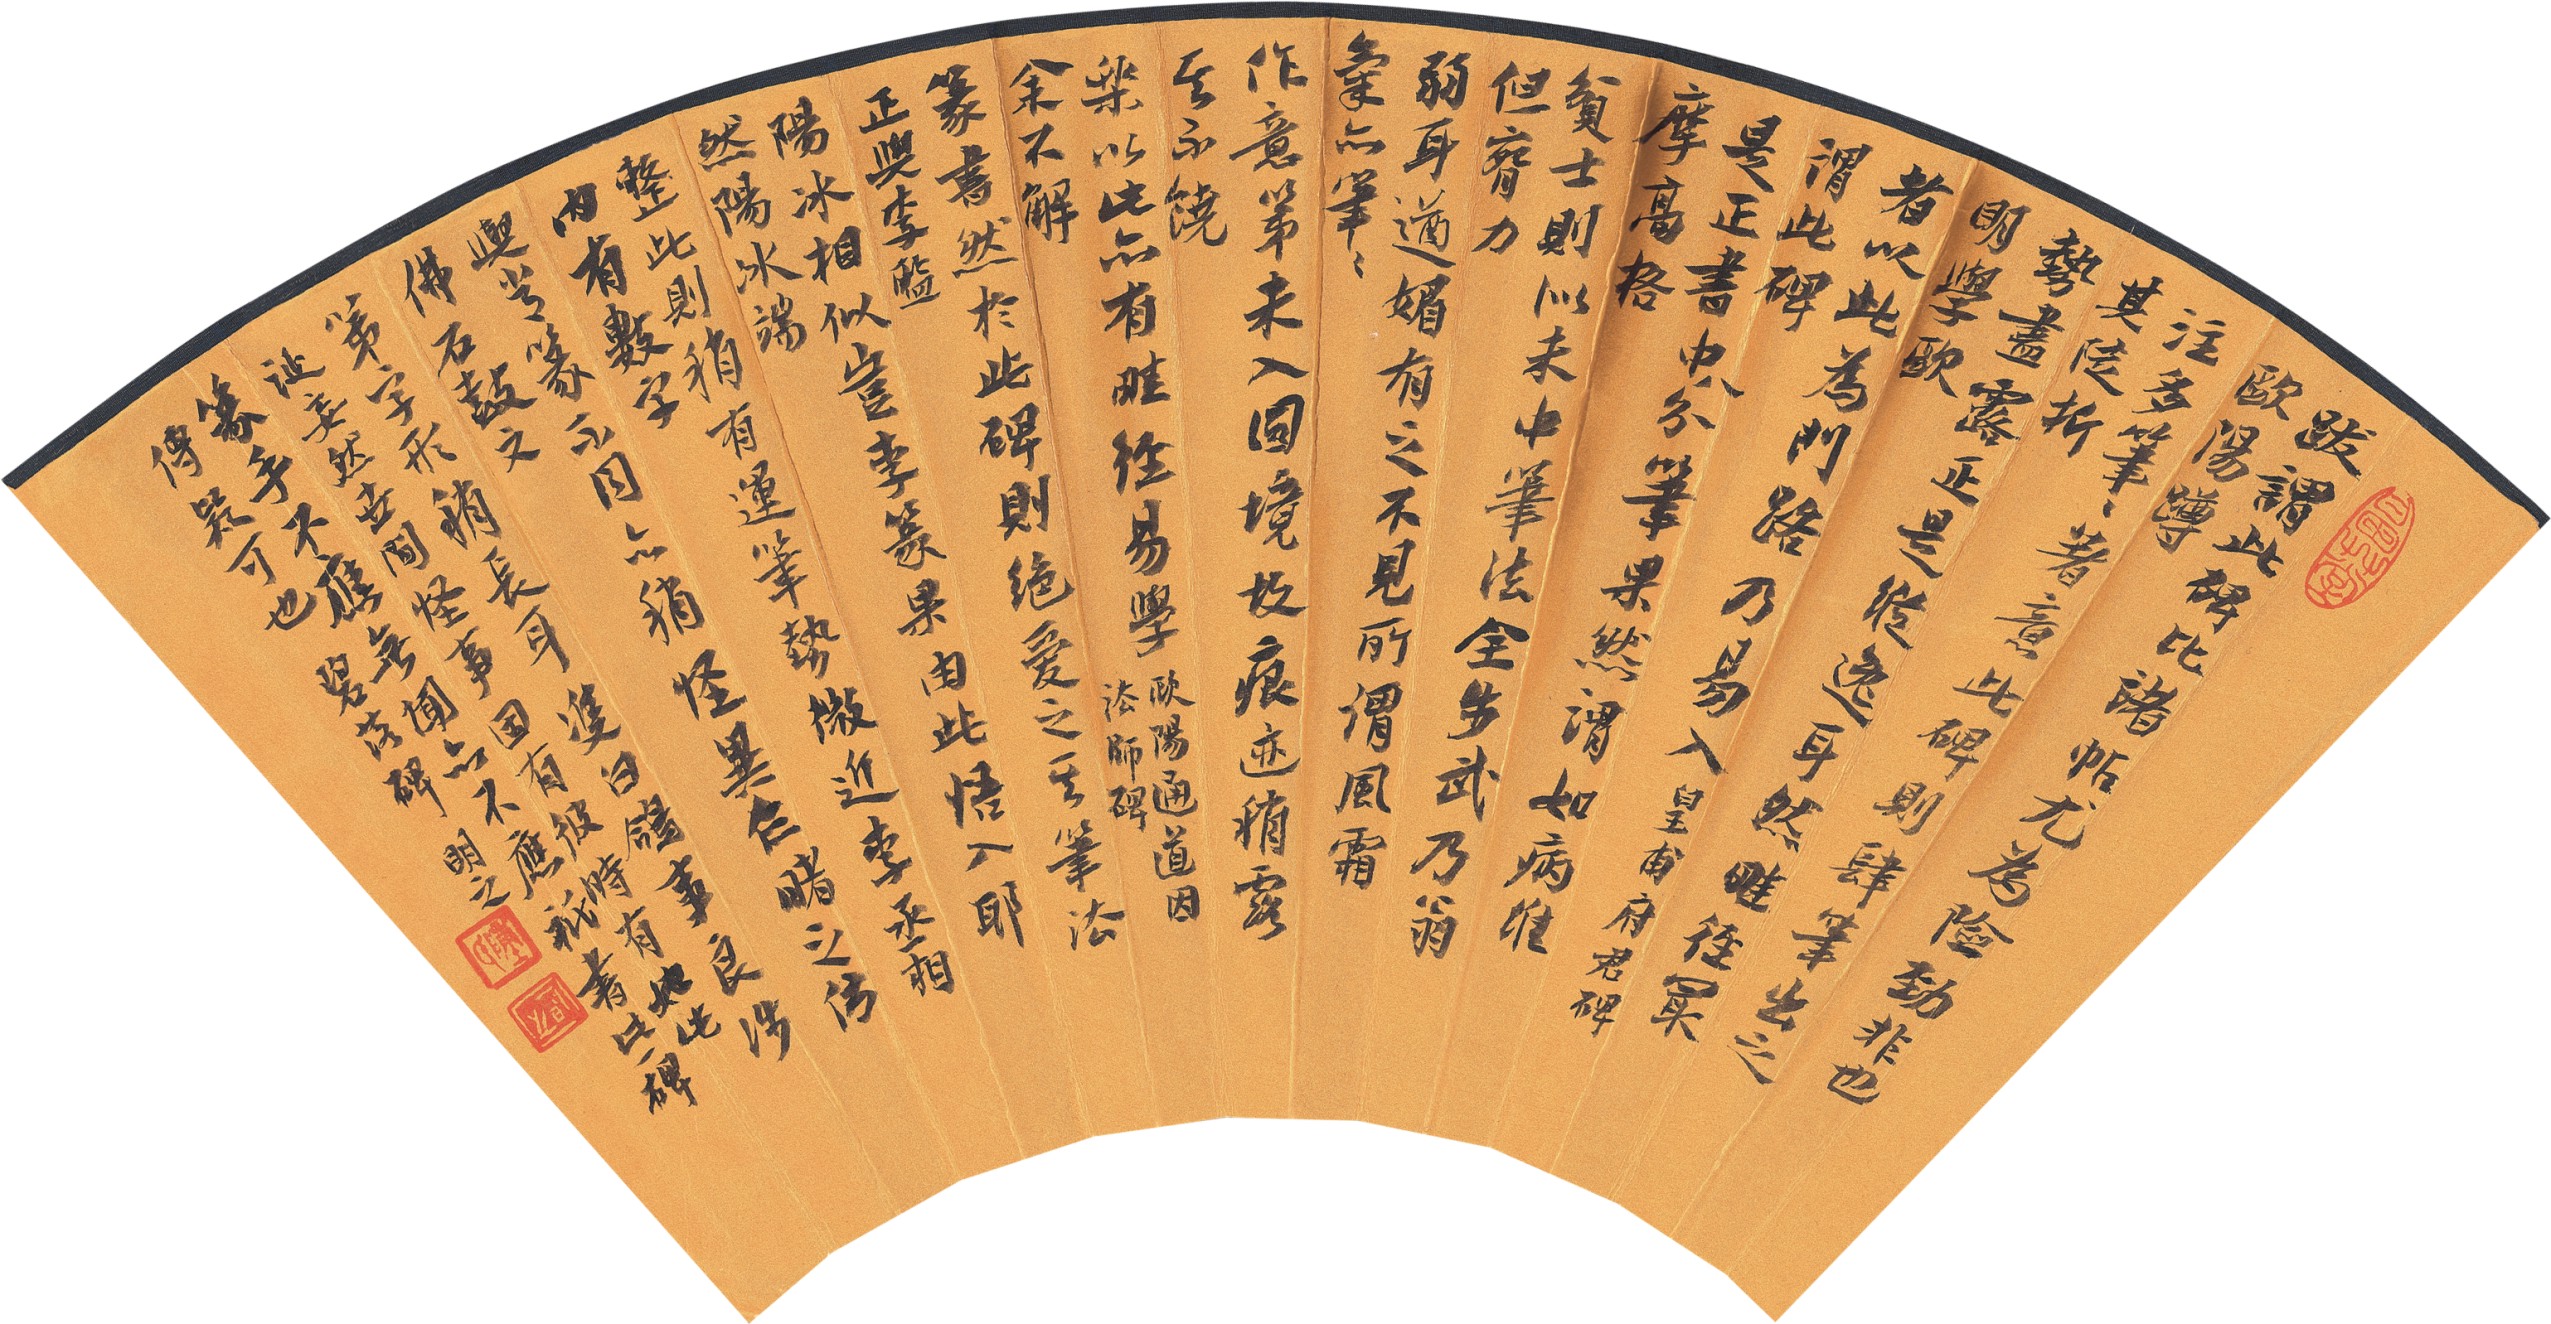 跋謂此碑比諸帖尤為險勁非也
歐陽蹲
注多筆〻著意此碑則肆筆出之
其陡折
勢盡露正是縱逸耳然畦徑冣
明學歐
者以此為門路乃易入 皇甫府君碑
謂此碑
是正書中八分筆果然謂如病維
摩高格
貧士則似未中筆法全步武乃翁
但膂力
弱耳遒媚有之不見所謂風霜
氣亦筆〻
作意第未入因境故痕迹稍露
其不饒
樂以此亦有畦徑易學 歐陽通道因
法師碑
余不解
篆書然於此碑則絕愛之其筆法
正與李監
陽冰相似豈李篆果由此悟入耶
然陽冰端
整此則稍有運筆勢微近李丞相
內有數字
與常篆不同亦稍怪異乍睹之仿
佛石鼓文
第字形稍長耳雙白鴿事良涉
誕妄然世間怪事固有彼時有如此
篆手不應無聞亦不應祇書此碑
傳疑可也 碧落碑 明之